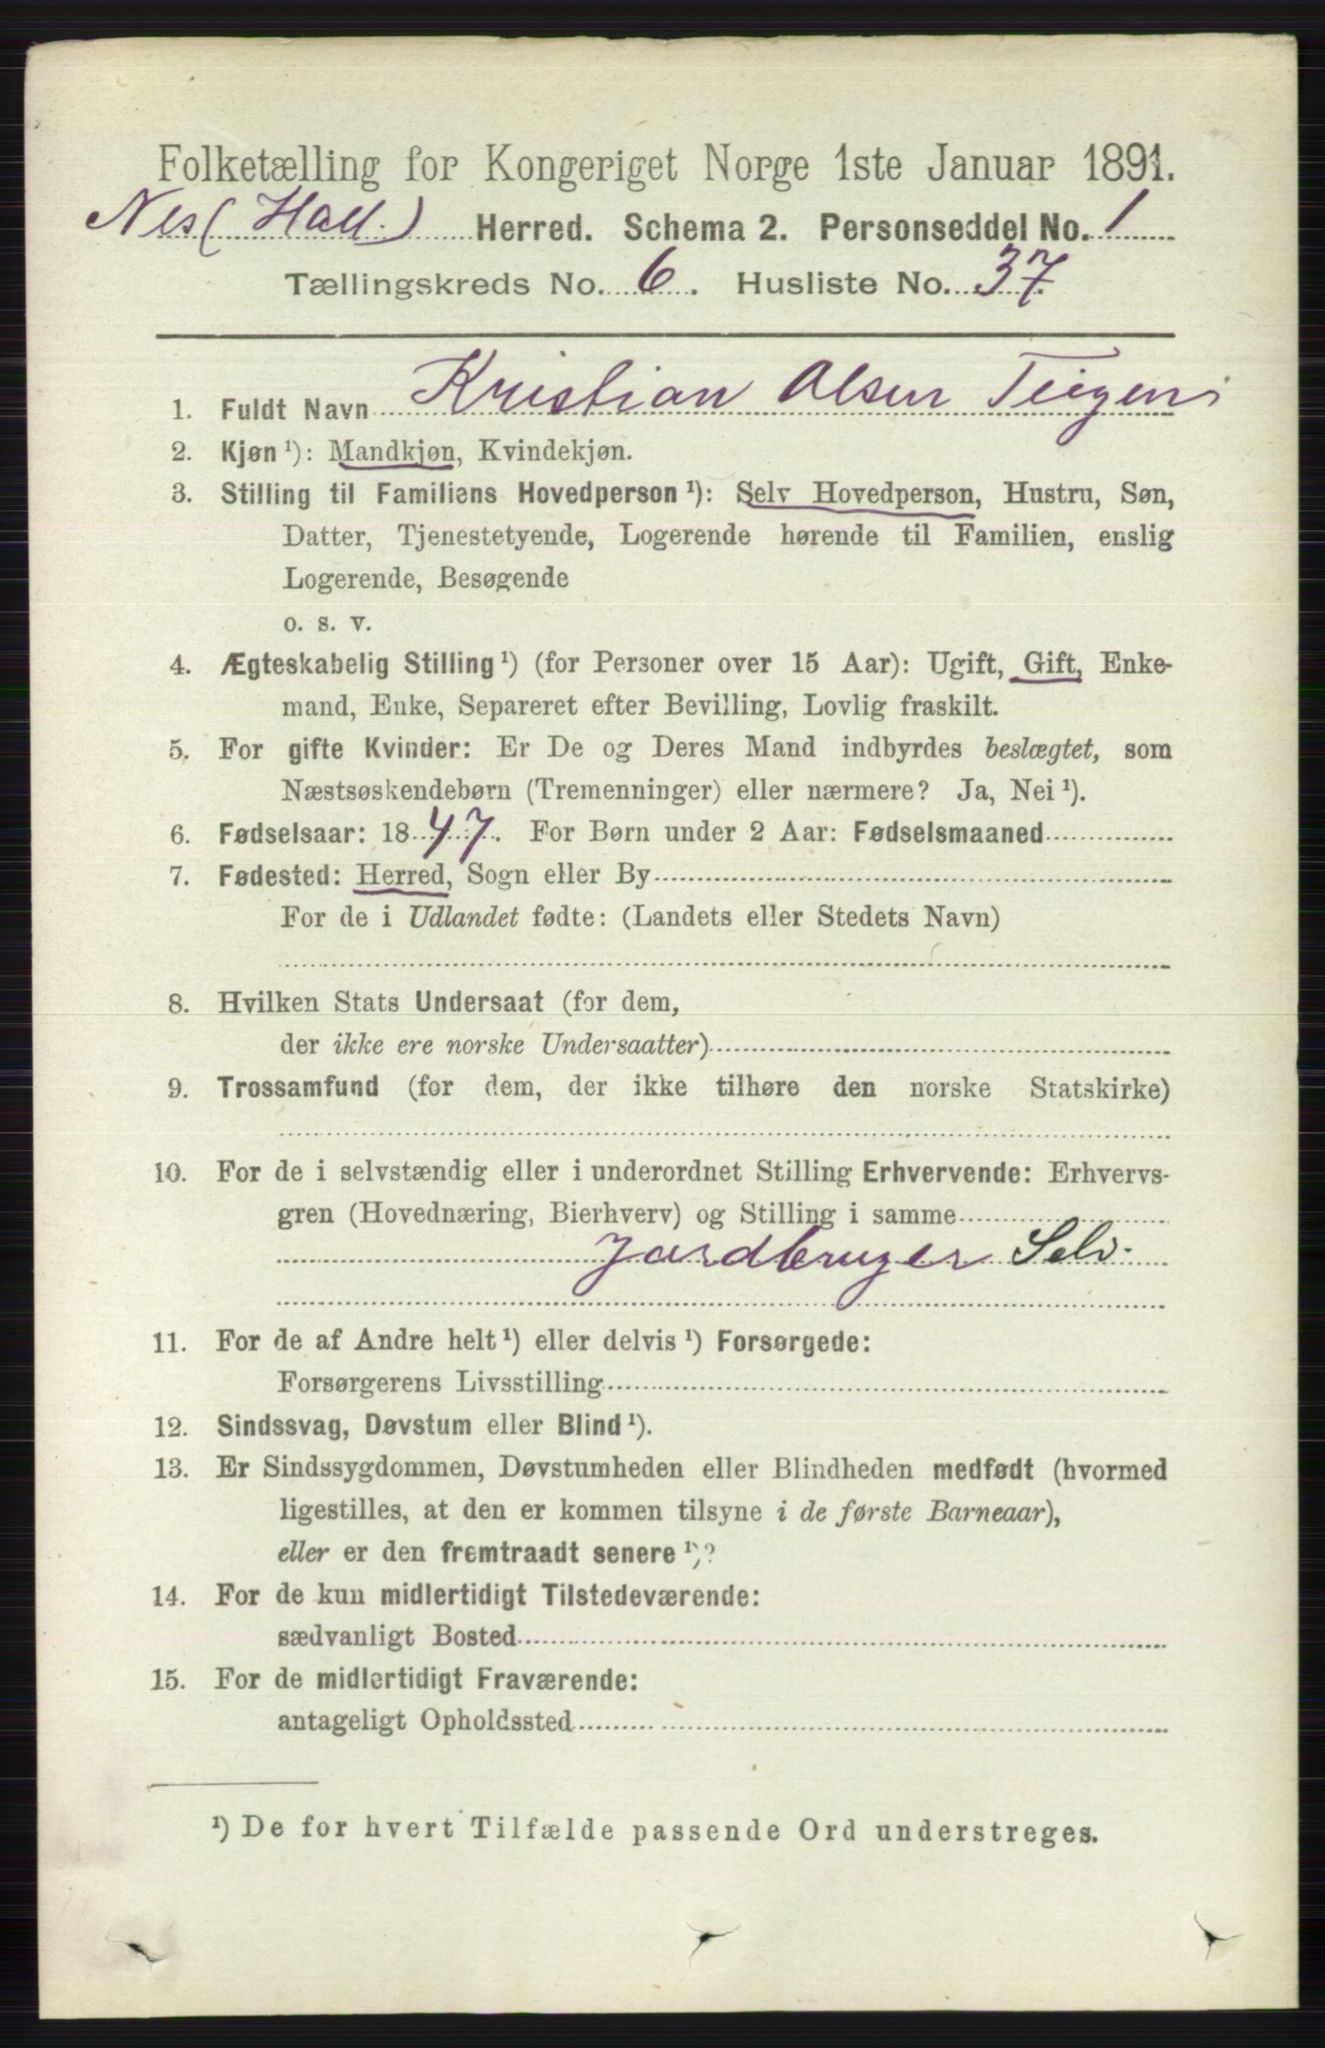 Folketælling for Kongeriget Norge 1ste Januar 1891.
Nes (Hall.) Herred. Schema 2. Personseddel No. 1
Tællingskreds No. 6. Husliste No. 37.
1. Fuldt Navn Kristian Olsen Teigen
2. Kjøn ¹): Mandkjøn, Kvindekjøn.
3. Stilling til Familiens Hovedperson ¹): Selv Hovedperson, Hustru, Søn,
Datter, Tjenestetyende, Logerende hørende til Familien, enslig
Logerende, Besøgende
o. s. v.
4. Ægteskabelig Stilling ¹) (for Personer over 15 Aar): Ugift, Gift, Enke-
mand, Enke, Separeret efter Bevilling, Lovlig fraskilt.
5. For gifte Kvinder: Er De og Deres Mand indbyrdes beslægtet, som
Næstsøskendebørn (Tremenninger) eller nærmere? Ja, Nei ¹).
6. Fødselsaar: 1847. For Børn under 2 Aar: Fødselsmaaned
7. Fødested: Herred, Sogn eller By
For de i Udlandet fødte: (Landets eller Stedets Navn)
8. Hvilken Stats Undersaat (for dem,
der ikke ere norske Undersaatter)
9. Trossamfund (for dem, der ikke tilhøre den norske Statskirke)
10. For de i selvstændig eller i underordnet Stilling Erhvervende: Erhvervs-
gren (Hovednæring, Bierhverv) og Stilling i samme
Jordbruger Selv.
11. For de af Andre helt ¹) eller delvis ¹) Forsørgede:
Forsørgerens Livsstilling
12. Sindssvag, Døvstum eller Blind ¹).
13. Er Sindssygdommen, Døvstumheden eller Blindheden medfødt (hvormed
ligestilles, at den er kommen tilsyne i de første Barneaar),
eller er den fremtraadt senere ¹)?
14. For de kun midlertidigt Tilstedeværende:
sædvanligt Bosted
15. For de midlertidigt Fraværende:
antageligt Opholdssted
¹) De for hvert Tilfælde passende Ord understreges.